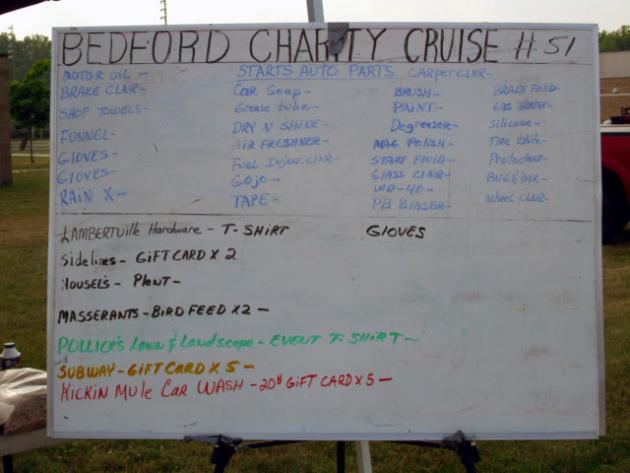 BEDFORD CHARITY CRUISE #51
STARTS AUTO PARTS
MOTOR OIL -
BRAKE CLNR-
SHOP TOWELS-
FUNNEL-
GLOVES-
GLOVES-
RAIN X-
Car Soap-
Grease tube-
DRY N SHINE-
AIR FRESHNER-
Fuel Inject. CLNR-
GoJo-
TAPE-
CARPET CLNR-
BRUSH-
PAINT-
Degreaser-
MAG POLISH-
START FLUID-
GLASS CLNR-
WD-40-
PB BLASER-
BRAKE FLUID-
silicone-
Tire White-
Protectant-
BUG & TAR-
Wheel CLNR-
LAMBERTVILLE Hardware - T-SHIRT GLOVES
Sidelines- GIFT CARD X 2
HOUSEL'S- PLANT-
MASSERANTS-BIRD FEED X2 -
POLLICK'S Lawn & Landscape- EVENT T-SHIRT-
SUBWAY- GIFT CARD X 5 -
KICKIN MULE CAR WASH -20$ GIFT CARD X 5 -